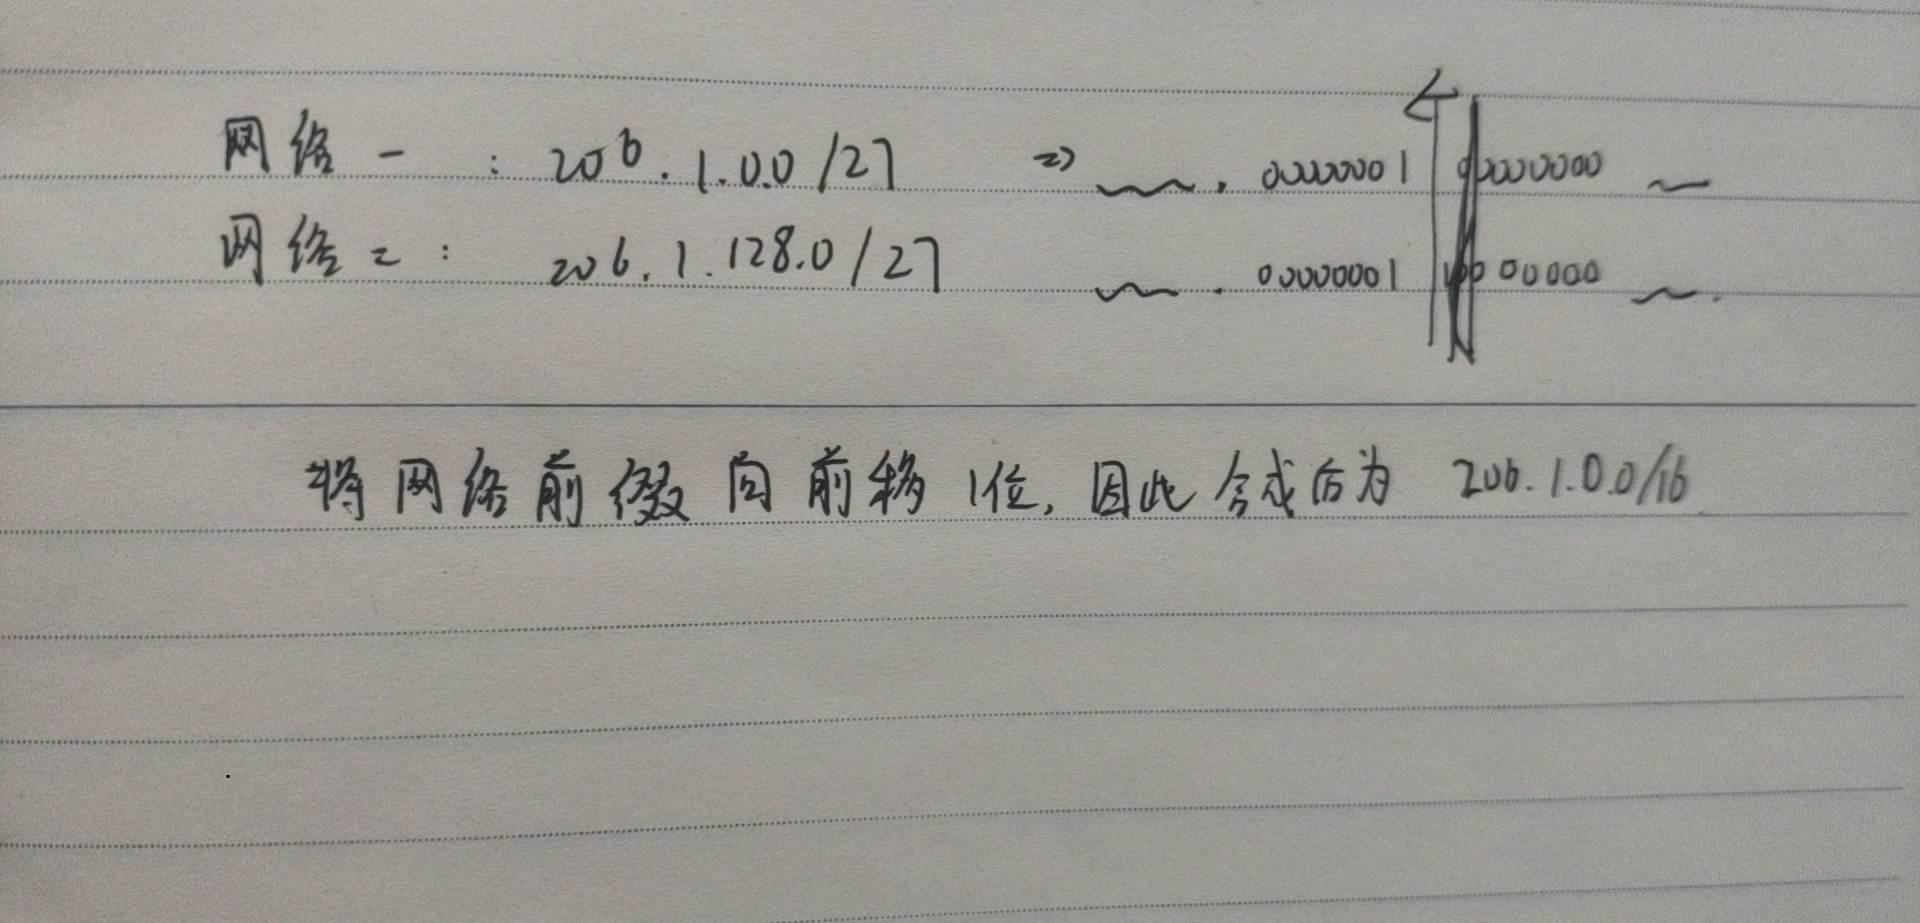 网络一 : 206.1.0.0/27 => ~. 00000001 00000000 ~
网络二: 206.1.128.0/27 ~. 00000001 10000000 ~.
将网络前缀向前移1位,因此合成后为 206.1.0.0/16